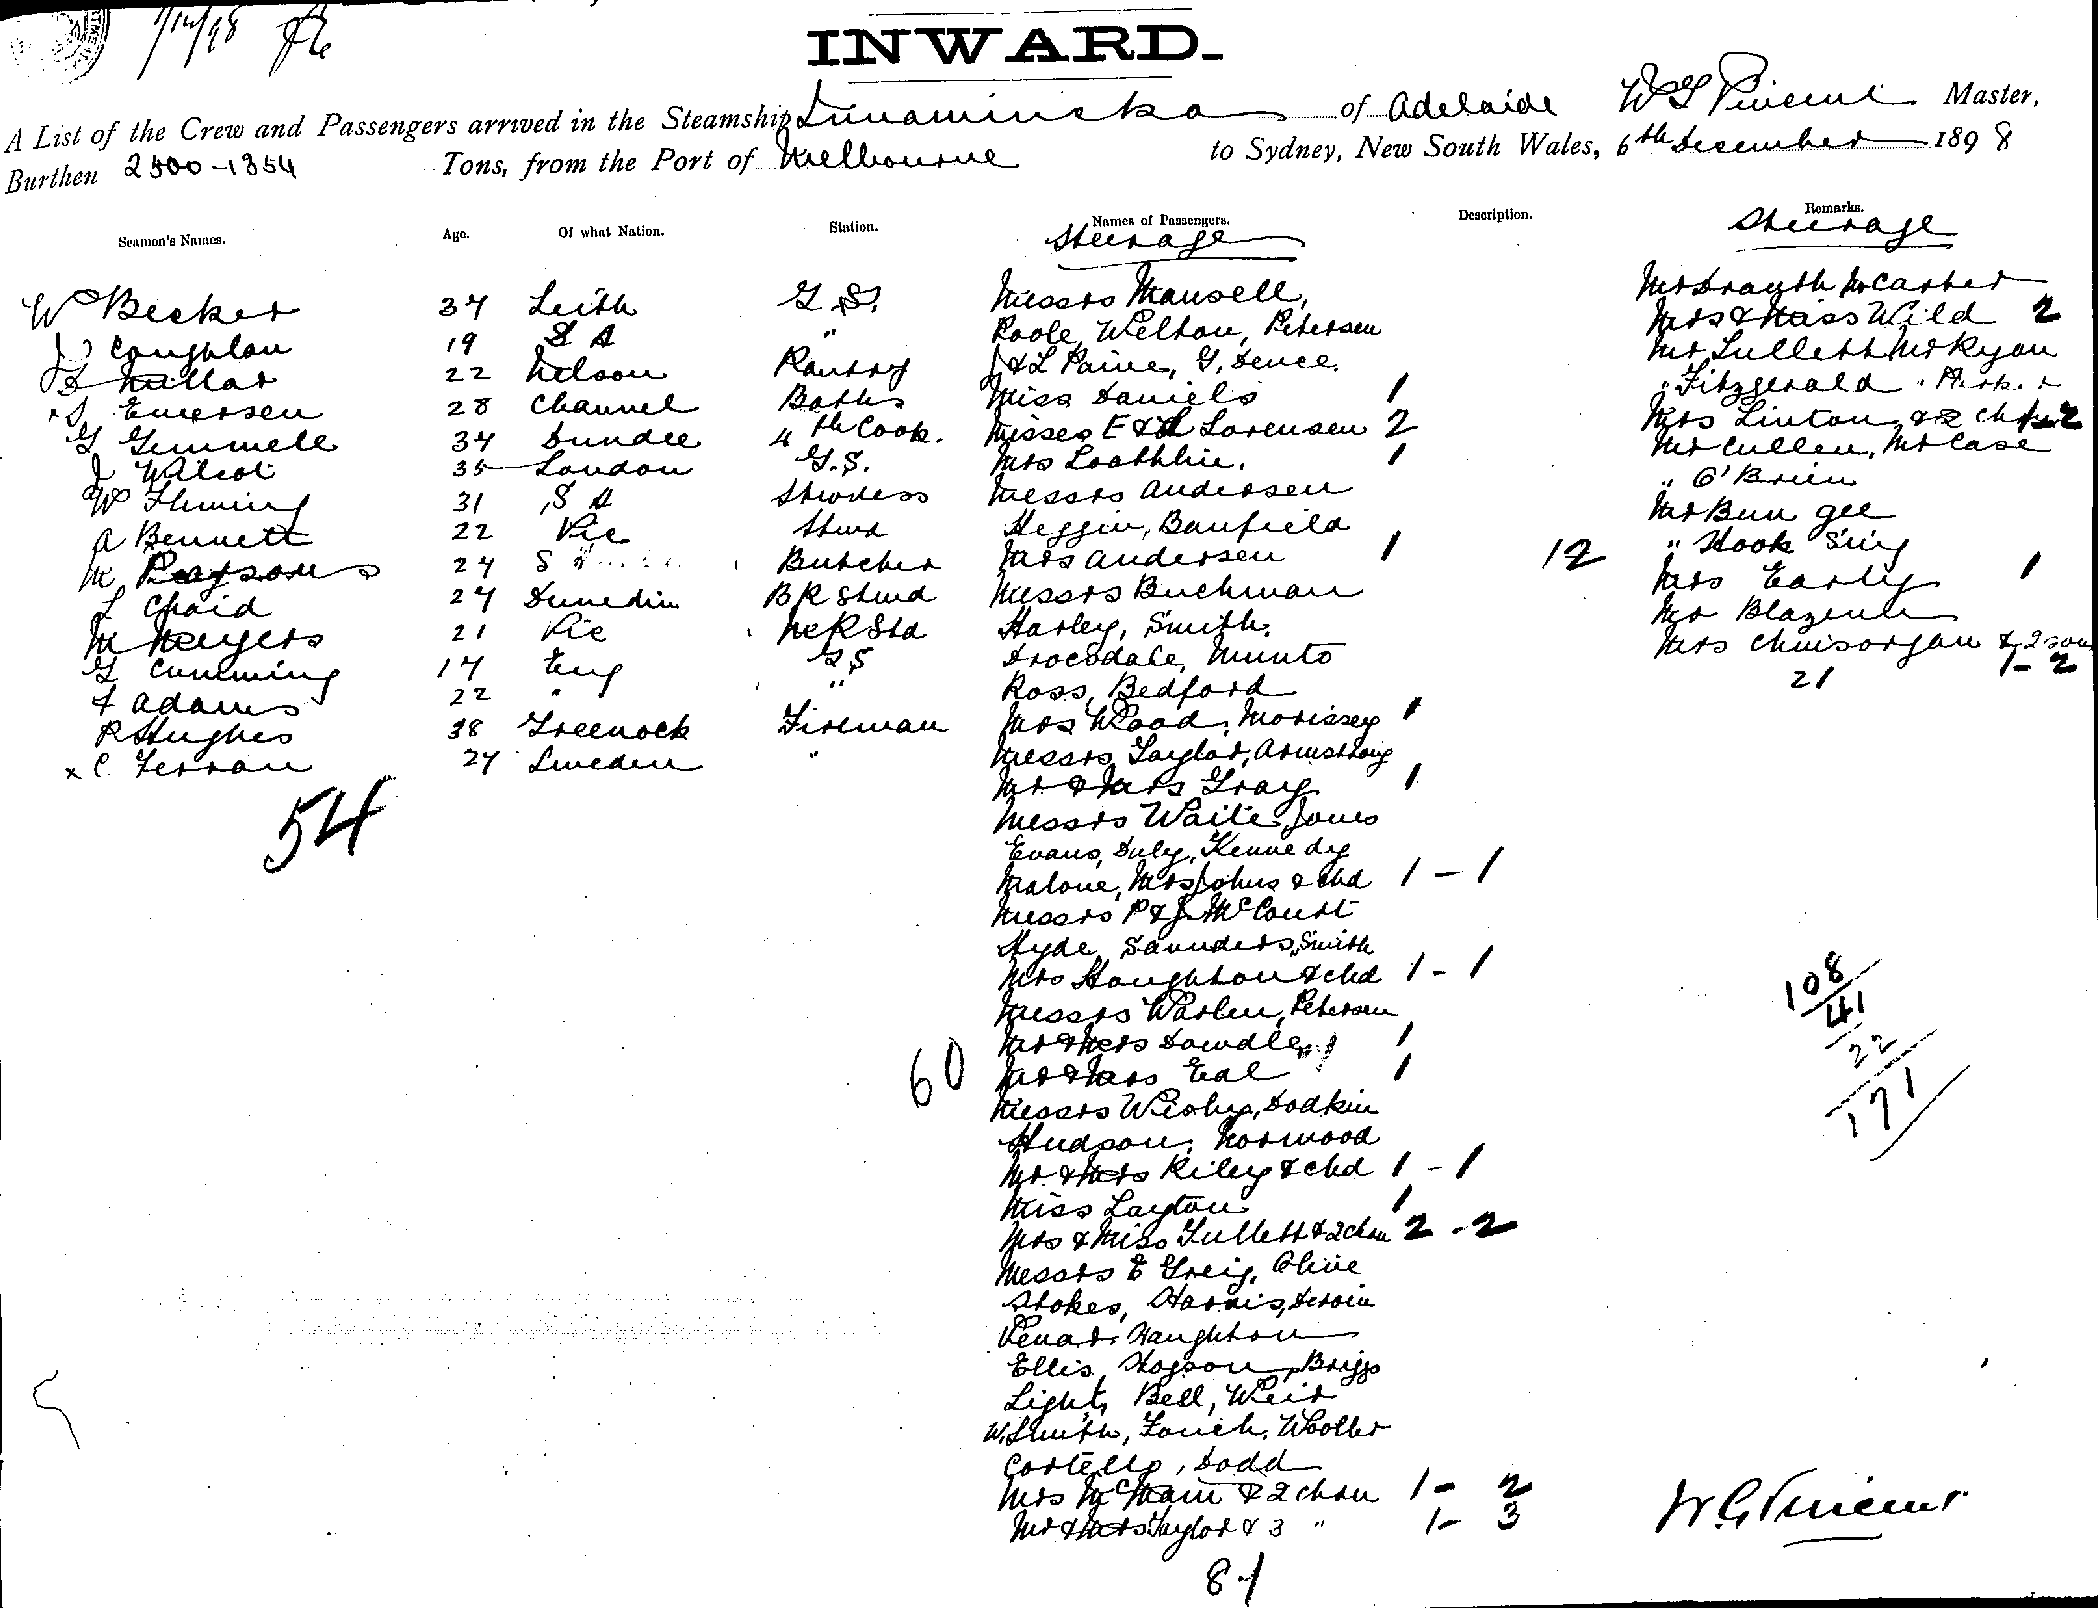 7/12/98
INWARD.
A List of the Crew and Passengers arrived in the Steamship Innamincka of Adelaide W G Vincent Master,
Burthen 2500-1354 Tons, from the Port of Melbourne to Sydney, New South Wales, 6th December 1898
Seamen's Names. Age. Of what Nation. Station. Names of Passengers. Description. Remarks.
Steerage
Steerage
W Becker 37 Leith G.S.
J Coughlan 19 S A "
Millar 22 Nelson Pantry
Emersen 28 Channel Baths
G Gemmell 34 Dundee 4th Cook.
J Wilcot 35 London G.S.
W Fleming 31 S A Stwdess
A Bennett 22 Vic Stwd
M Parsons 24 S Butcher
L Craid 27 Dunedin B R Stwd
M Meyers 21 Vic Mc R Std
G Cumming 17 Eng G S
F Adams 22 " "
R Hughes 38 Greenock Fireman
x C. Ferran 27 Sweden "
54
Messrs Mansell,
Poole, Welton, Petersen
J & L Paine, G. Dence.
Miss Daniels 1
Misses E & L Sorensen 2
Mrs 1
Messrs Andersen
Heggin, Banfield
Mrs Andersen 1 12
Messrs Buchman
Harley, Smith,
Drocsdale, Munto
Ross, Bedford
Mrs Wood, Morissey 1
Messrs Taylor, Armstrong
Mr & Mrs Gray 1
Messrs Waite, Jones
Evans, Duly, Kennedy
Malone, Mrs Johns & chd 1 - 1
Messrs P & J McCourt
Hyde, Saunders, Smith
Mrs Houghton & chd 1 - 1
Messrs Warlen, Petersen
Mr & Mrs Dowdle 1
60
Mr & Mrs Eal 1
Messrs Dodkin
Hudson, Norwood
Mr & Mrs Riley & chd 1 - 1
Miss Layton 1
Mrs & Miss Gullett & 2 chn 2 - 2
Messrs E Greig, Olive
Stokes, Harris,
Haughton
Ellis, Hogson, Briggs
Light, Bell, Weir
W. Smith, Wooller
Costello, Dodd
Mrs & 2 chn 1 - 2
Mr & Mrs Taylor & 3 " 1 - 3
81
McCarter
Mrs & Miss Wild 2
Mr Gullett Mr Ryan
" Fitzgerald " Parker
Mrs Linton & 2 ch 1 - 2
Mr Cullen, Mr Case
" O'Brien
Mr Bun gee
" Hook Sing
Mrs Early 1
Mr
Mrs & 2 sons
1 - 2
21
108
41
22
171
W. G. Vincent